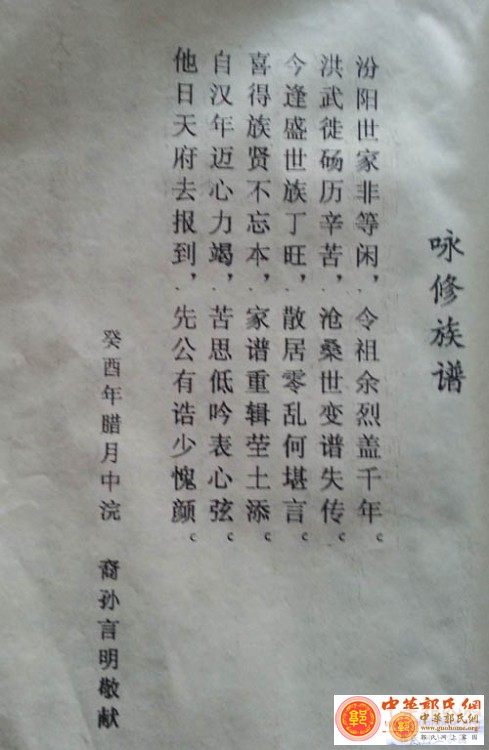 咏修族谱
汾阳世家非等闲，令祖余烈盖千年。
洪武徙砀历辛苦，沧桑世变谱失传。
今逢盛世族丁旺，散居零乱何堪言。
喜得族贤不忘本，家谱重辑茔土添。
自汉年迈心力竭，苦思低吟表心弦。
他日天府去报到，先公有诰少愧颜。
癸酉年腊月中浣 裔孙言明敬献
中华郭氏网
中华郭氏网
www.guohome.org
郭氏网上家园